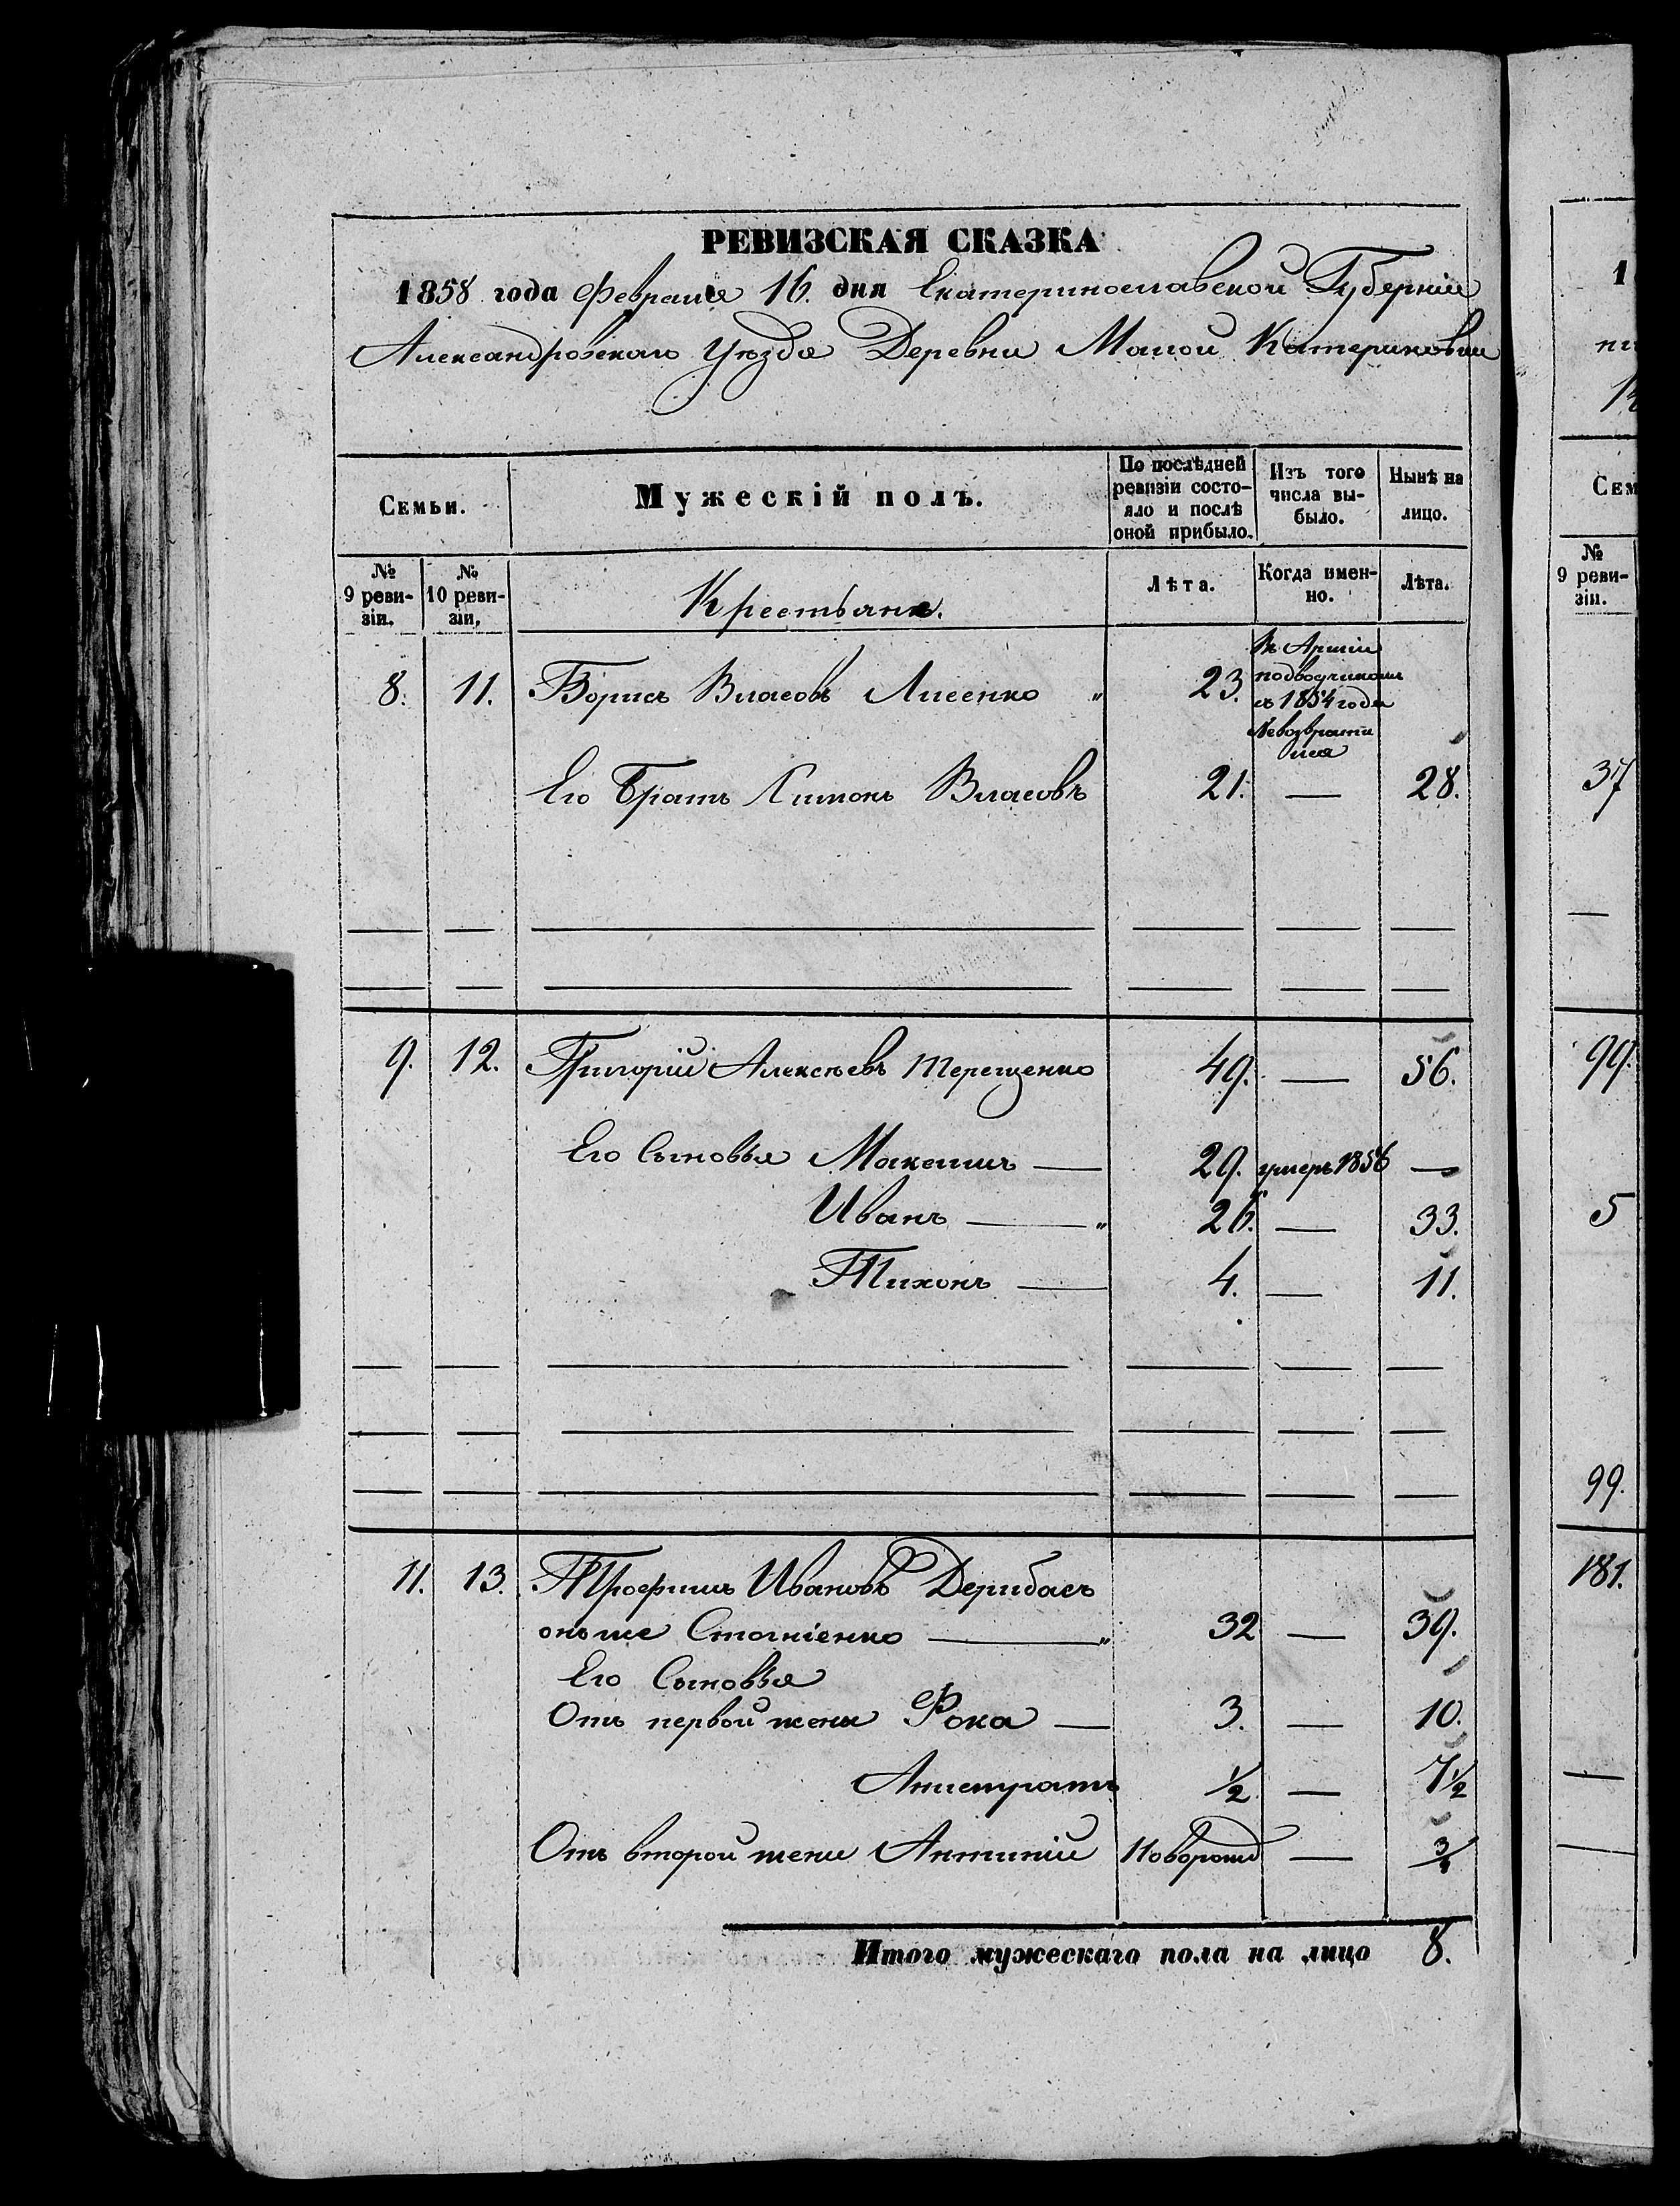 РЕВИЗСКАЯ СКАЗКА
1858 года Февраля 16. дня Екатеринославской Губерніи
Александровскаго Уѣзда Деревни Малой Катериновки
Семьи.
Мужескій полъ.
По послѣдней ревизіи состояло и послѣ оной прибыло.
Изъ того числа выбыло.
Нынѣ на лицо.
№ 9 ревизіи.
№ 10 ревизіи.
Крестьяне.
Лѣта.
Когда именно.
Лѣта.
8. 11. Борисъ Власовъ Лисенко " 23. Въ Арміи подводчикомъ съ 1854 года Невозвратился
Его Братъ Симонъ Власовъ 21. — 28.
9. 12. Григорій Алексѣевъ Терещенко 49. — 56.
Его Сыновья Максимъ — 29. умеръ 1856 —
Иванъ — " 26. — 33.
Тихонъ — 4. — 11.
11. 13. Трофимъ Ивановъ Дерибасъ
онъ же Стогніенко — " 32 — 39.
Его Сыновья
Отъ первой жены Фока — 3. — 10.
Анистратъ ½ — 7½
Отъ второй жены Антипій Новорожд — ¾
Итого мужескаго пола на лицо 8.
1
Сем
№ 9 ревизіи.
37
99.
5
99.
181.